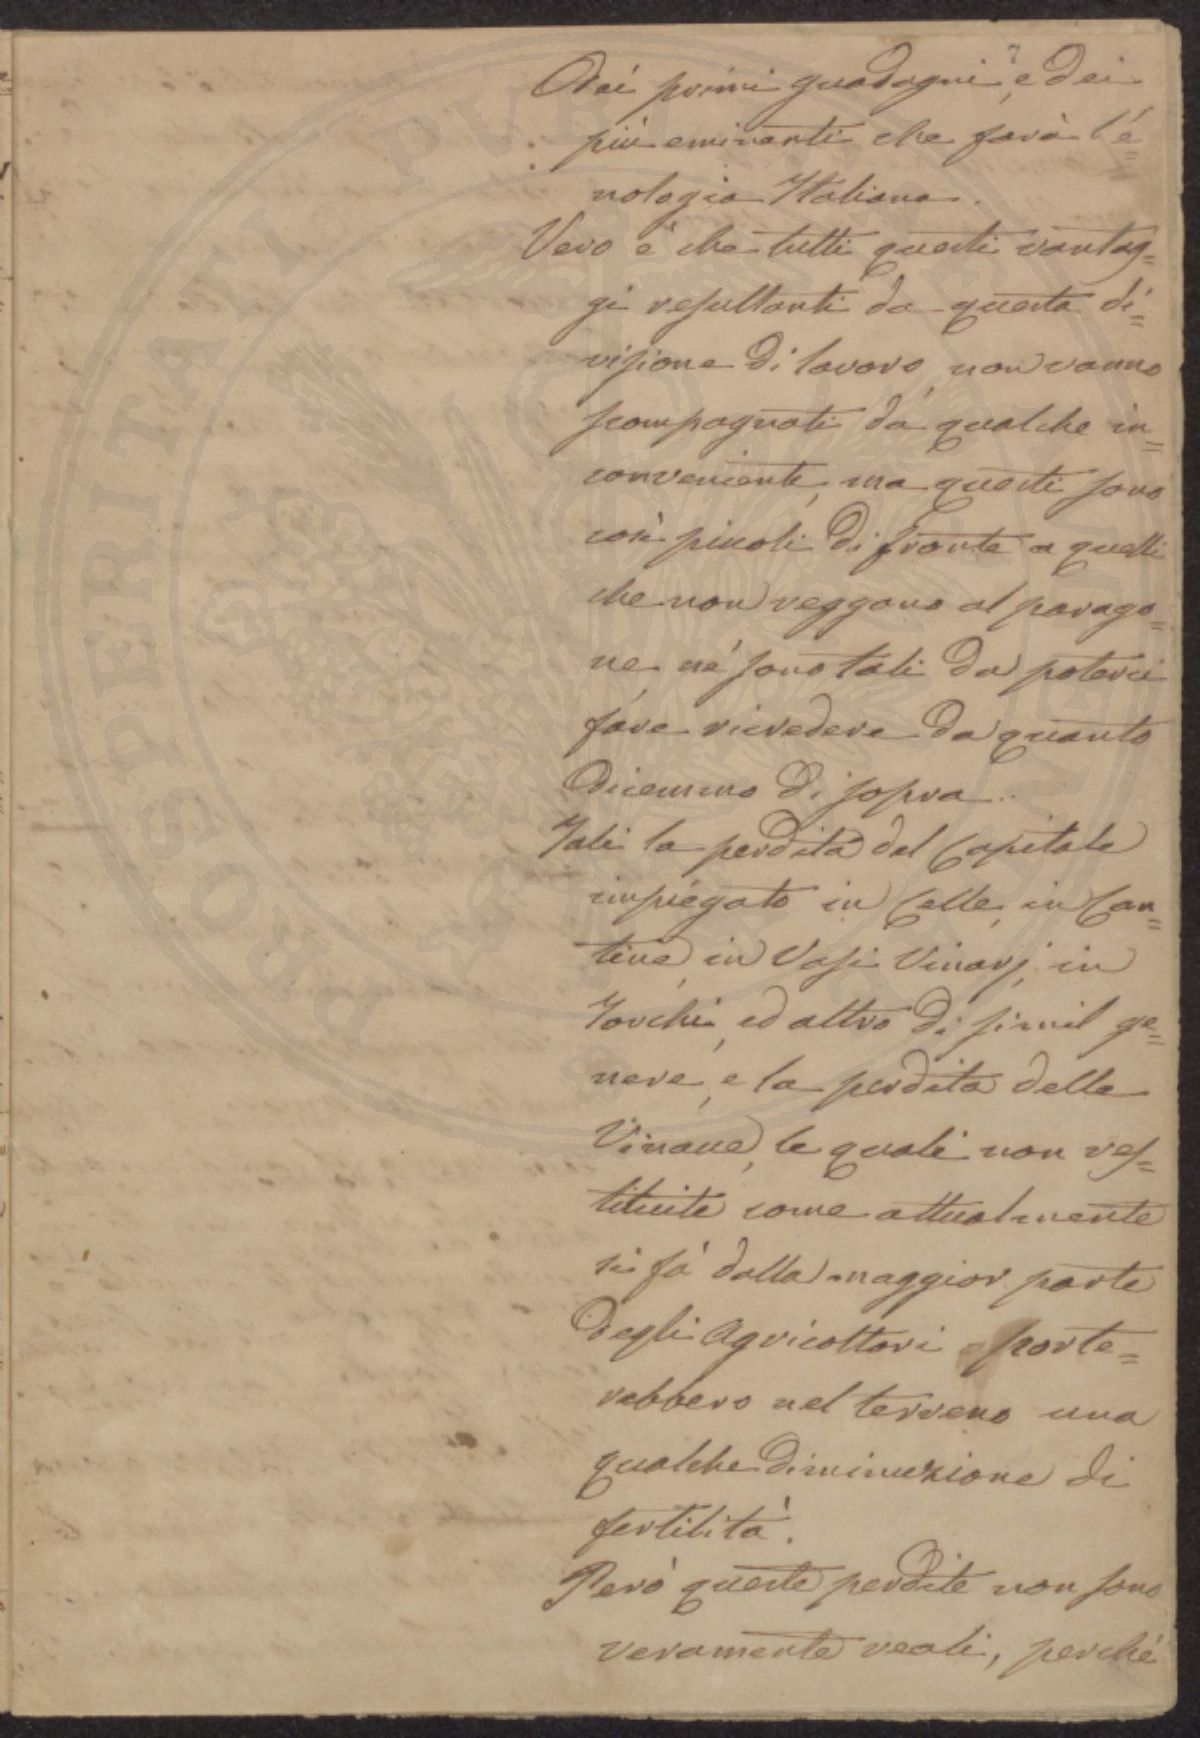 7
Dei primi guadagni, e dei
più eminenti che farà l'é=
nologia Italiana.
Vero é che tutti questi vantag=
gi resultanti da questa di=
visione di lavoro, non vanno
scompagnati da qualche in=
conveniente, ma questi sono
così piccoli di fronte a quelli
che non reggano al parago=
ne né sono tali da poterci
fare ricredere da quanto
dicemmo di sopra.
Tali la perdita del Capitale
impiegato in Celle, in Can=
tine, in Vasi Vinarj, in
Torchi, ed altro di simil ge=
nere, e la perdita delle
Vinacce, le quali non res=
tituite come attualmente
si fà dalla maggior parte
degli Agricoltori porte=
rebbero nel terreno una
qualche diminuzione di
fertilità.
Però queste perdite non sono
veramente reali, perché
PROSPERITATI